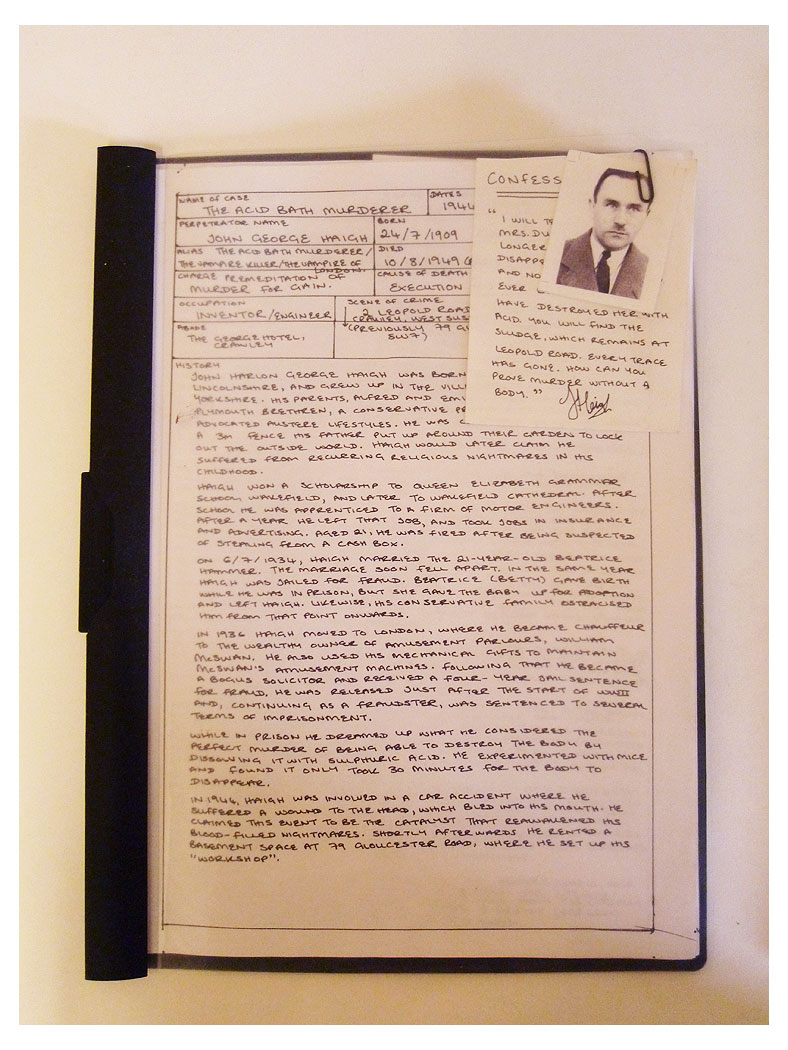 NAME OF CASE
THE ACID BATH MURDERER
DATES
1944
PERPETRATOR NAME
JOHN GEORGE HAIGH
BORN
24/7/1909
ALIAS THE ACID BATH MURDERER/
THE VAMPIRE KILLER/THE VAMPIRE OF
LONDON.
DIED
10/8/1949
CHARGE PREMEDITATION OF
MURDER FOR GAIN.
CAUSE OF DEATH
EXECUTION
OCCUPATION
INVENTOR/ENGINEER
SCENE OF CRIME
2 LEOPOLD ROAD
CRAWLEY, WEST SUS
(PREVIOUSLY 79 GL
SW7)
ABODE
THE GEORGE HOTEL,
CRAWLEY
HISTORY
JOHN HARLON GEORGE HAIGH WAS BORN
LINCOLNSHIRE, AND GREW UP IN THE VILL
YORKSHIRE. HIS PARENTS, ALFRED AND EMI
PLYMOUTH BRETHREN, A CONSERVATIVE PR
ADVOCATED AUSTERE LIFESTYLES. HE WAS C
A 3m FENCE HIS FATHER PUT UP AROUND THEIR GARDEN TO LOCK
OUT THE OUTSIDE WORLD. HAIGH WOULD LATER CLAIM HE
SUFFERED FROM RECURRING RELIGIOUS NIGHTMARES IN HIS
CHILDHOOD.
HAIGH WON A SCHOLARSHIP TO QUEEN ELIZABETH GRAMMAR
SCHOOL WAKEFIELD, AND LATER TO WAKEFIELD CATHEDRAL. AFTER
SCHOOL HE WAS APPRENTICED TO A FIRM OF MOTOR ENGINEERS.
AFTER A YEAR HE LEFT THAT JOB, AND TOOK JOBS IN INSURANCE
AND ADVERTISING. AGED 21, HE WAS FIRED AFTER BEING SUSPECTED
OF STEALING FROM A CASH BOX.
ON 6/7/1934, HAIGH MARRIED THE 21-YEAR-OLD BEATRICE
HAMMER. THE MARRIAGE SOON FELL APART. IN THE SAME YEAR
HAIGH WAS JAILED FOR FRAUD. BEATRICE (BETTY) GAVE BIRTH
WHILE HE WAS IN PRISON, BUT SHE GAVE THE BABY UP FOR ADOPTION
AND LEFT HAIGH. LIKEWISE, HIS CONSERVATIVE FAMILY OSTRACISED
HIM FROM THAT POINT ONWARDS.
IN 1936 HAIGH MOVED TO LONDON, WHERE HE BECAME CHAUFFEUR
TO THE WEALTHY OWNER OF AMUSEMENT PARLOURS, WILLIAM
McSWAN. HE ALSO USED HIS MECHANICAL GIFTS TO MAINTAIN
McSWAN'S AMUSEMENT MACHINES. FOLLOWING THAT HE BECAME
A BOGUS SOLICITOR AND RECEIVED A FOUR-YEAR JAIL SENTENCE
FOR FRAUD, HE WAS RELEASED JUST AFTER THE START OF WWII
AND, CONTINUING AS A FRAUDSTER, WAS SENTENCED TO SEVERAL
TERMS OF IMPRISONMENT.
WHILE IN PRISON HE DREAMED UP WHAT HE CONSIDERED THE
PERFECT MURDER OF BEING ABLE TO DESTROY THE BODY BY
DISSOLVING IT WITH SULPHURIC ACID. HE EXPERIMENTED WITH MICE
AND FOUND IT ONLY TOOK 30 MINUTES FOR THE BODY TO
DISAPPEAR.
IN 1944, HAIGH WAS INVOLVED IN A CAR ACCIDENT WHERE HE
SUFFERED A WOUND TO THE HEAD, WHICH BLED INTO HIS MOUTH. HE
CLAIMED THIS EVENT TO BE THE CATALYST THAT REAWAKENED HIS
BLOOD-FILLED NIGHTMARES. SHORTLY AFTERWARDS HE RENTED A
BASEMENT SPACE AT 79 GLOUCESTER ROAD, WHERE HE SET UP HIS
"WORKSHOP".
CONFESS
"I WILL T
MRS. DU
LONGER
DISAPP
AND NO
EVER
HAVE DESTROYED HER WITH
ACID. YOU WILL FIND THE
SLUDGE, WHICH REMAINS AT
LEOPOLD ROAD. EVERY TRACE
HAS GONE. HOW CAN YOU
PROVE MURDER WITHOUT A
BODY."
JHaigh